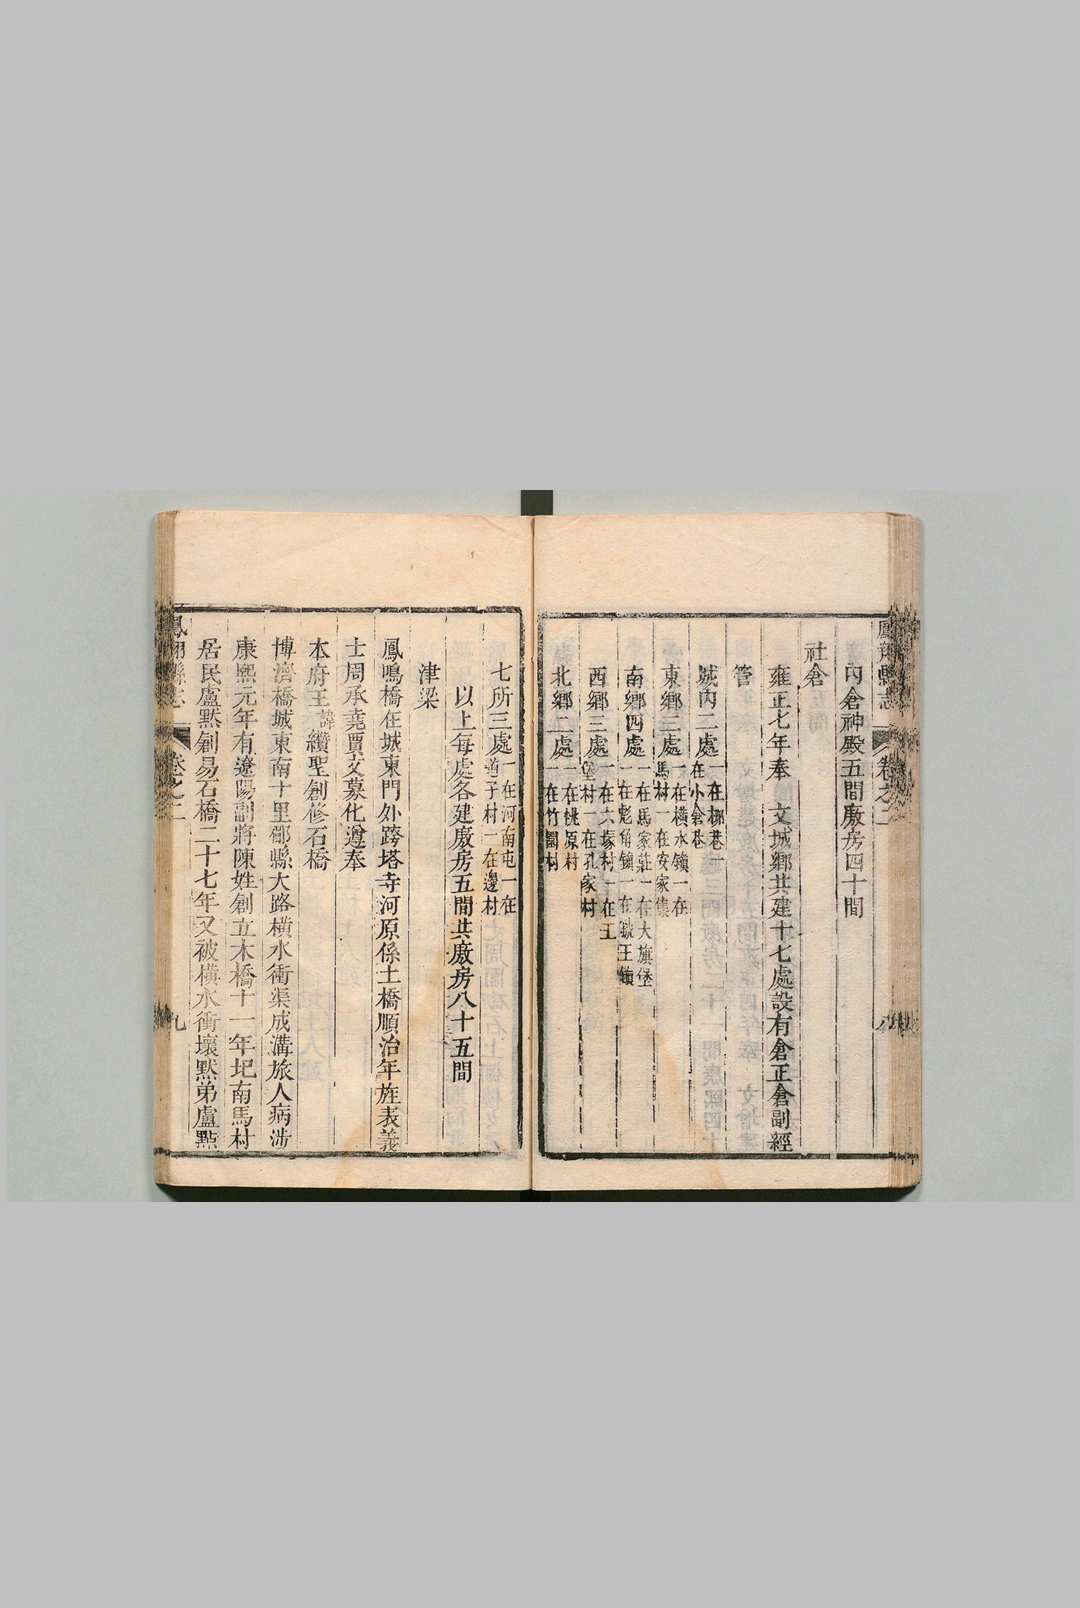 鳳翔縣志
卷之二
內倉神殿五間廒房四十間
社倉
雍正七年奉　文城鄉共建十七處設有倉正倉副經
管
城內二處一在柳巷一在小倉巷
東鄉三處一在橫水鎮一在馬村一在安家集
南鄉四處一在馬家莊一在大旗堡一在彪角鎮一在虢王鎮
西鄉三處一在六塚村一在王堡村一在孔家村
北鄉二處一在桃原村一在竹園村
七所三處一在河南屯一在道子村一在邊村
以上每處各建廒房五間共廒房八十五間
津梁
鳳鳴橋在城東門外跨塔寺河原係土橋順治年旌表義
士周承堯賈文募化遵奉
本府王諱纘聖創修石橋
博濟橋城東南十里郿縣大路橫水衝渠成溝旅人病涉
康熙元年有遼陽副將陳姓創立木橋十一年圮南馬村
居民盧默剏易石橋二十七年又被橫水衝壞默弟盧點
鳳翔縣志
卷之二
九